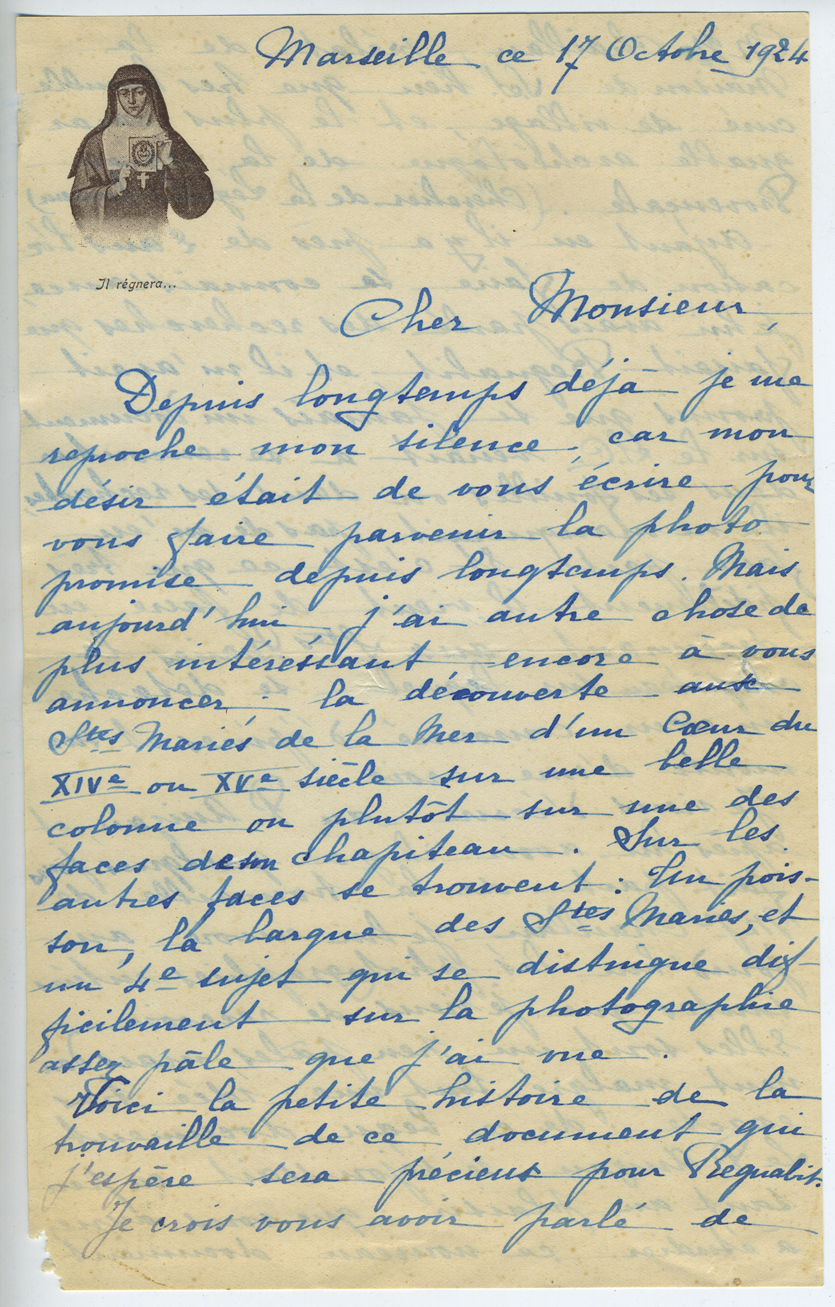 Marseille ce 17 Octobre 1924
Il régnera...
Cher Monsieur,
Depuis longtemps déjà je me
reproche mon silence, car mon
désir était de vous écrire pour
vous faire parvenir la photo
promise depuis longtemps. Mais
aujourd'hui j'ai autre chose de
plus intéréssant encore à vous
annoncer: la découverte aux
Stes Mariés de la Mer d'un Cœur du
XIVe ou XVe siècle sur une belle
colonne ou plutôt sur une des
faces de son chapiteau. Sur les
autres faces se trouvent: Un pois-
son, la barque des Stes Maries, et
un 4e sujet qui se distingue dif-
ficilement sur la photographie
assez pâle que j'ai vue.
Voici la petite histoire de la
trouvaille de ce document qui
j'espère sera précieux pour Regnabit.
Je crois vous avoir parlé de